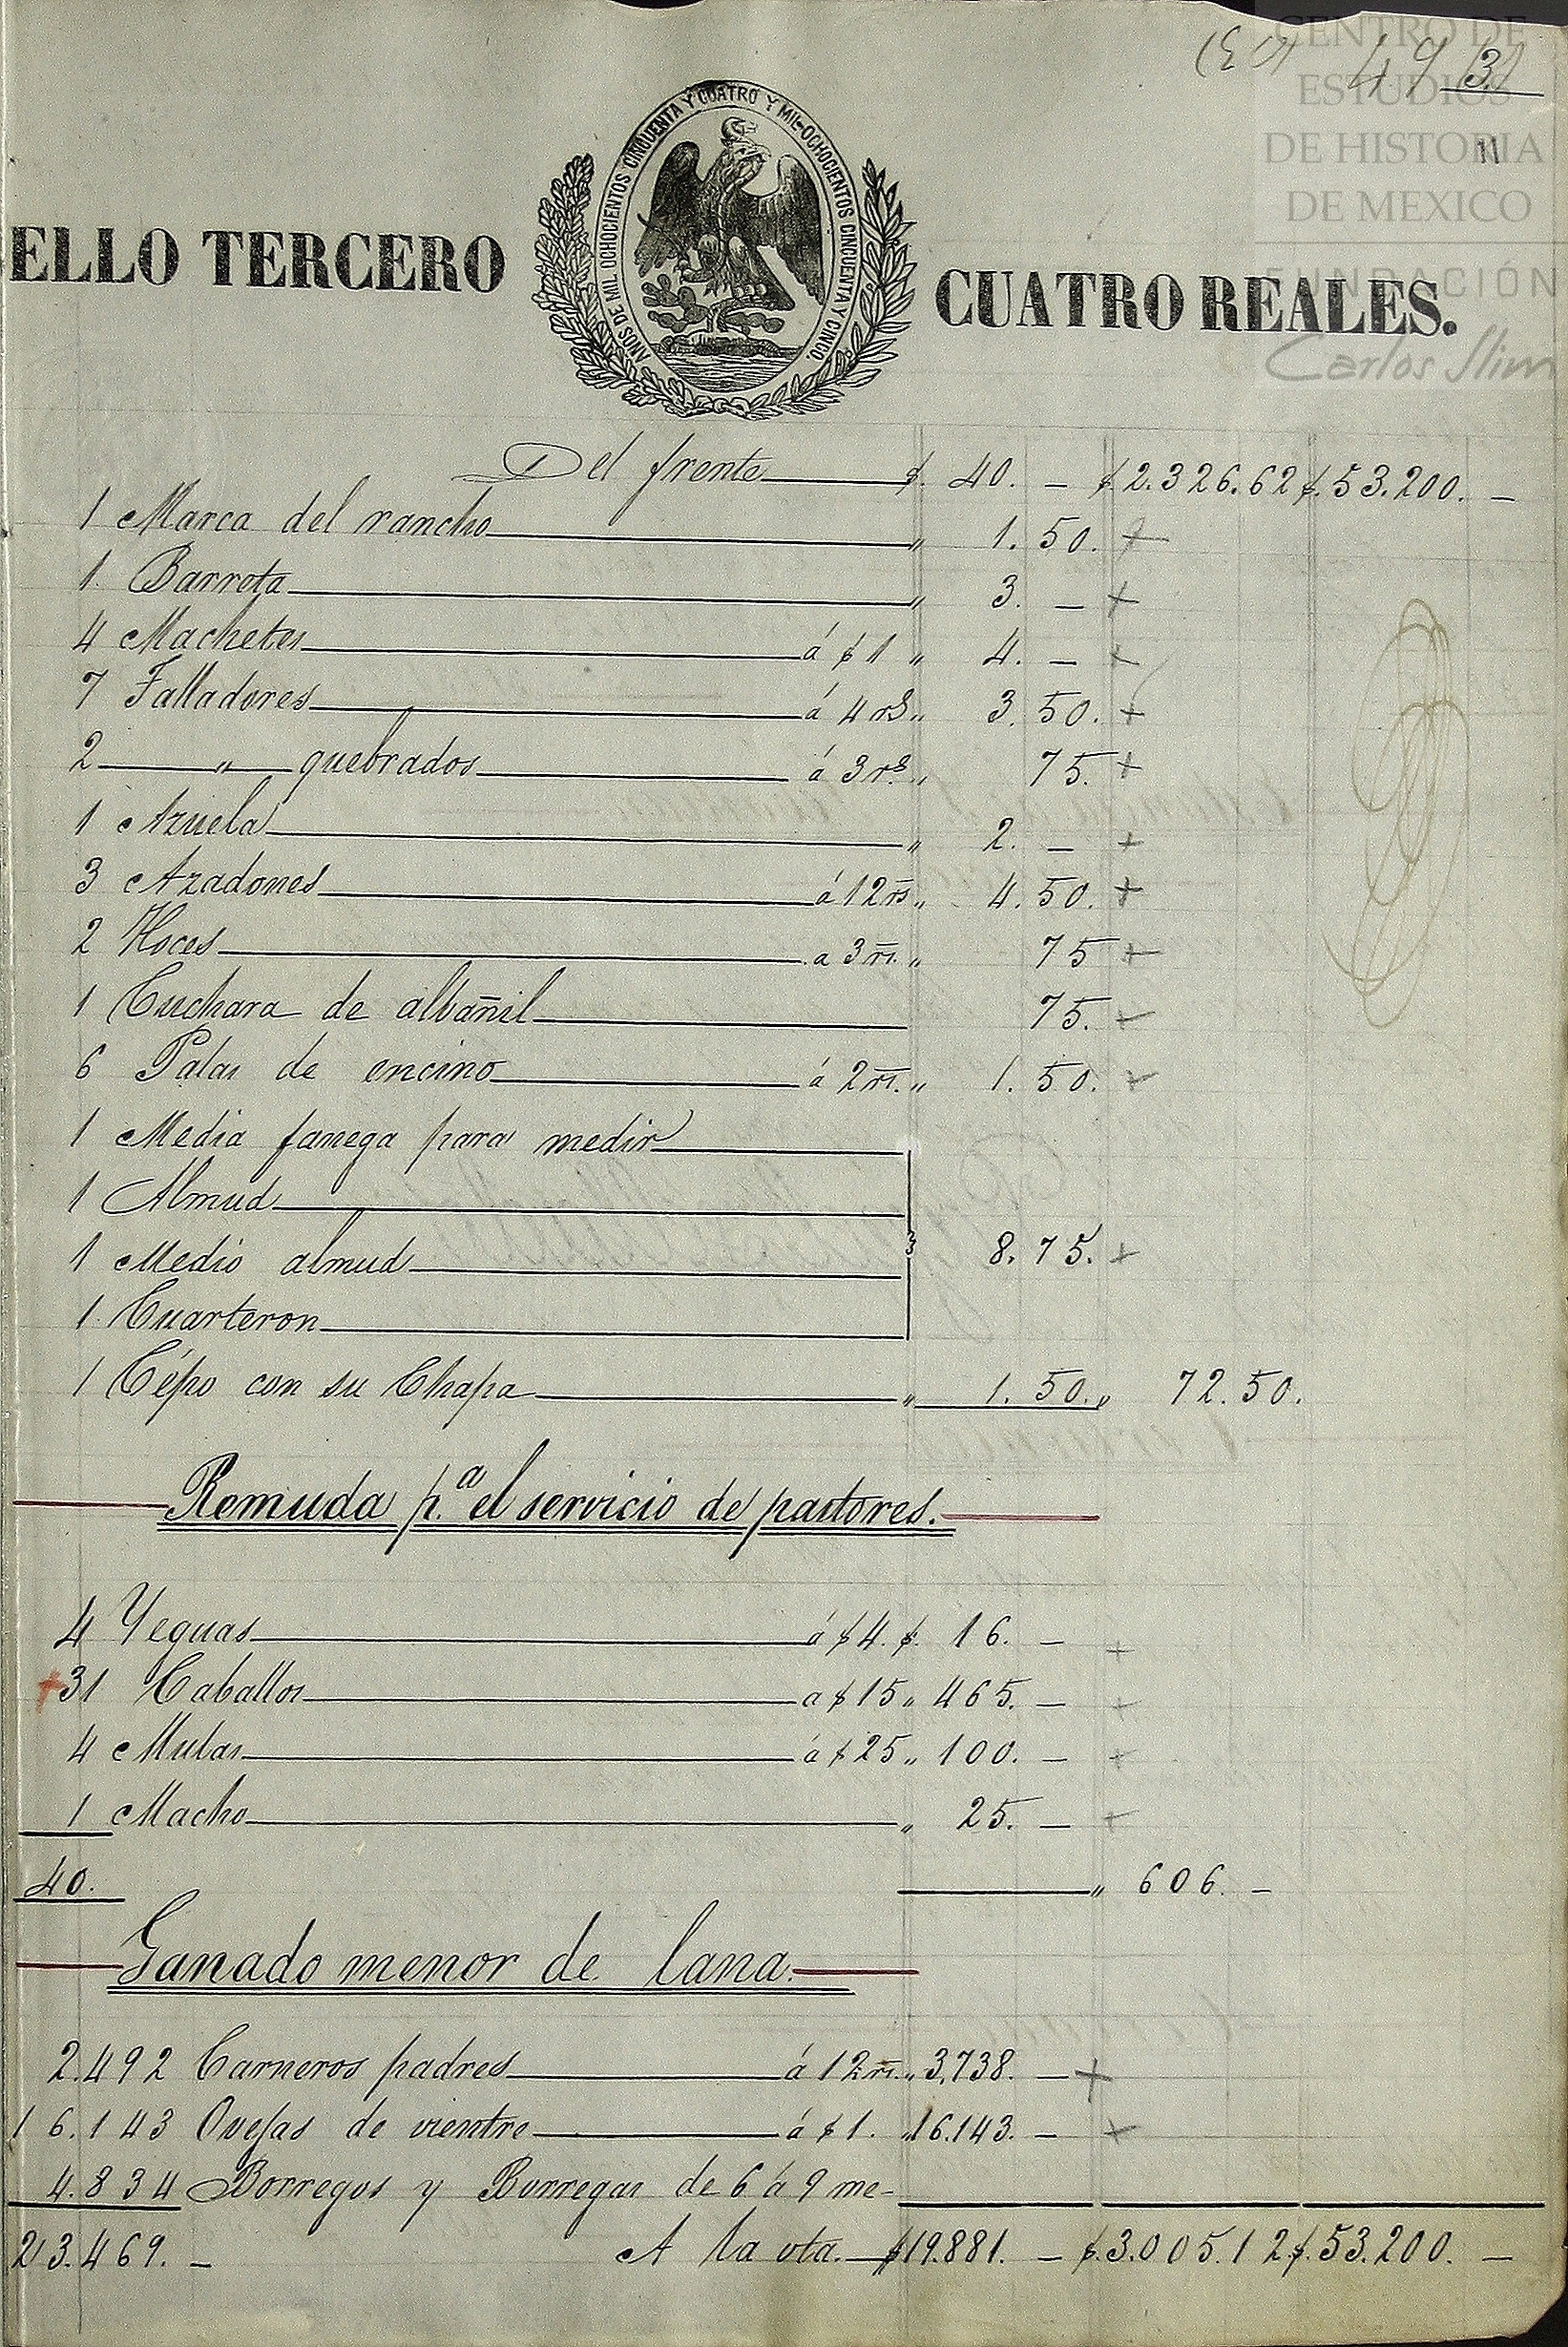 (E 1) 49 31
CENTRO DE
ESTUDIOS
DE HISTORIA 11
DE MEXICO
FUNDACIÓN
Carlos Slim
ELLO TERCERO CUATRO REALES.
AÑOS DE MIL OCHOCIENTOS CINCUENTA Y CUATRO Y MIL OCHOCIENTOS CINCUENTA Y CINCO.
Del frente $. 40. — $ 2.326.62 $. 53.200. —
1 Marca del rancho „ 1.50. +
1. Barreta „ 3. — +
4 Machetes á $ 1 „ 4. — +
7 Talladores á 4 rs. „ 3.50. +
2 „ quebrados á 3 rs. „ 75. +
1 Azuela „ 2. — +
3 Azadones á 12 rs. „ 4.50. +
2 Hoces a 3 rs. „ 75 +
1 Cuchara de albañil 75. +
6 Palas de encino á 2 rs. „ 1.50. +
1 Media fanega para medir
1 Almud
1 Medio almud 8.75. +
1. Cuarteron
1 Cépo con su Chapa „ 1.50. „ 72.50.
Remuda p.a el servicio de pastores.
4 Yeguas á $ 4. $. 16. — +
+31 Caballos a $ 15 „ 465. — +
4 Mulas á $ 25 „ 100. — +
1 Macho „ 25. — +
40. „ 606. —
Ganado menor de lana.
2.492 Carneros padres á 12 rs. „ 3,738. — +
16.143 Ovejas de vientre á $ 1. „ 16.143. — +
4.834 Borregos y Borregas de 6 á 9 me-
23.469. — A la vta. $ 19.881. — $. 3.005.12 $. 53.200. —